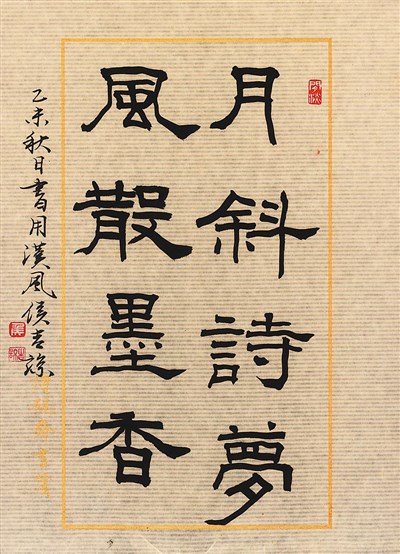 月斜詩夢
風散墨香
乙未秋日書用漢風侯吉諒